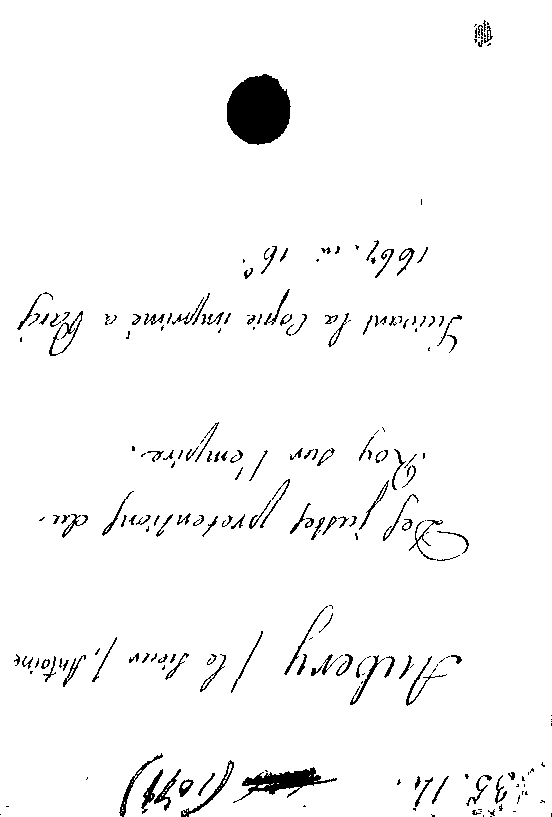 35. 14. (1077)
Aubery / le Sieur /, Antoine
Des justes pretentions du
Roy sur l'empire.
Suivant la Copie imprimé a Paris
1667. in 16°.